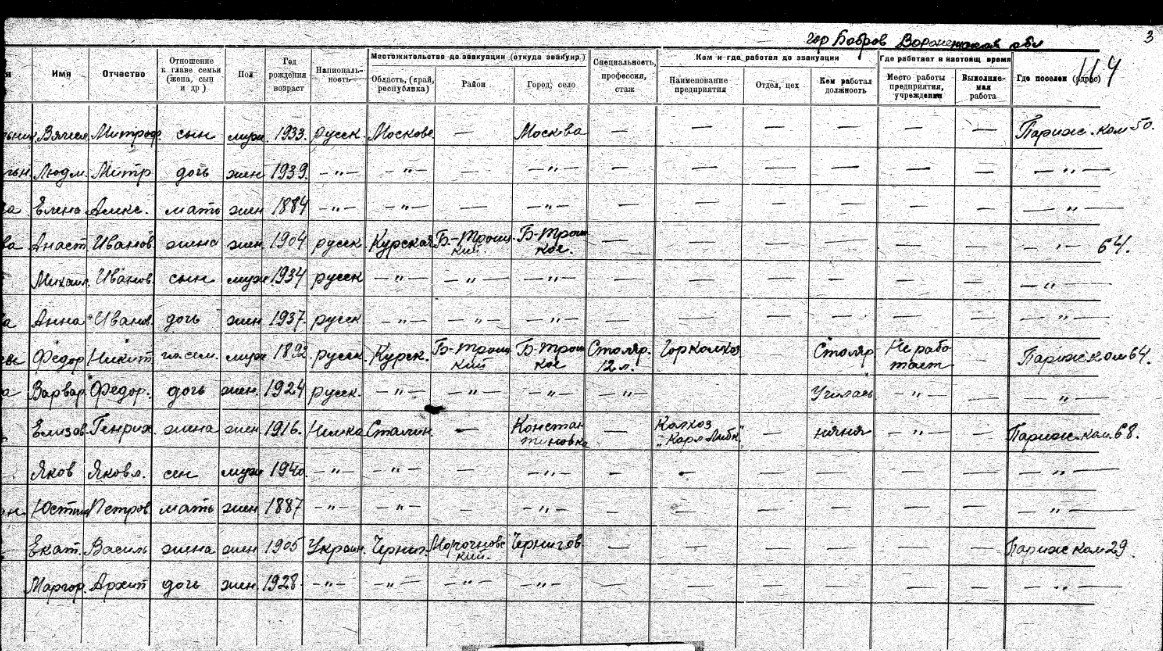 гор Бобров Воронежская обл 3
114
я Имя Отчество Отношение к главе семьи (жена, сын и др) Пол Год рождения возраст Националь-ность Местожительство до эвакуации (откуда эвакуир.) Специальность, профессия, стаж Кем и где работал до эвакуации Где работает в настоящ. время Где поселен (адрес)
Область, (край, республика) Район Город, село Наименование предприятия Отдел, цех Кем работал должность Место работы предприятия, учреждения Выполняе-мая работа
Вячесл. Митроф. сын муж. 1933. русск Москове — Москва — — — — — — Париж. ком 50.
Людм. Митр. дочь жен 1939. -"- -"- — -"- — — — — — — -"-
ва Елена Алекс. мать жен 1884 -"- -"- — -"- — — — — — — -"-
ва Анаст. Иванов. жена жен. 1904 русск Курская Б-Троиц-кий. Б-Троиц-кое. — — — — — — -"- 64.
Михаил. Иванов. сын муж 1934 русск -"- — -"- — — — — — — -"-
ва Анна Иванов. дочь жен 1937. русск -"- — -"- — — — — — — -"-
Федор. Никит. гл. сем. муж 1892 русск Курск. Б-Троиц-кий Б-Троиц-кое Столяр. 12 л. Горколхоз Столяр Не рабо-тает — Париж ком 64.
а Варвар. Федор. дочь жен. 1924 русск. -"- — -"- -"- — — Училась -"- — -"-
Елизав. Генрих. жена жен. 1916. Немка Сталин — Констан-тиновка — Колхоз "Карл Либк" — няня -"- — Париж. ком. 68.
Яков Яковл. сын муж 1940. -"- -"- — -"- — — — — — — -"-
Юстин Петров. мать жен 1887 -"- -"- — -"- — — — — — — -"-
Екат. Василь жена жен 1905 Украин. Чернig. Чернигов — — — — — — Париж ком 29.
Маргор. Архип дочь жен. 1928. -"- -"- — -"- — — — — — — -"-